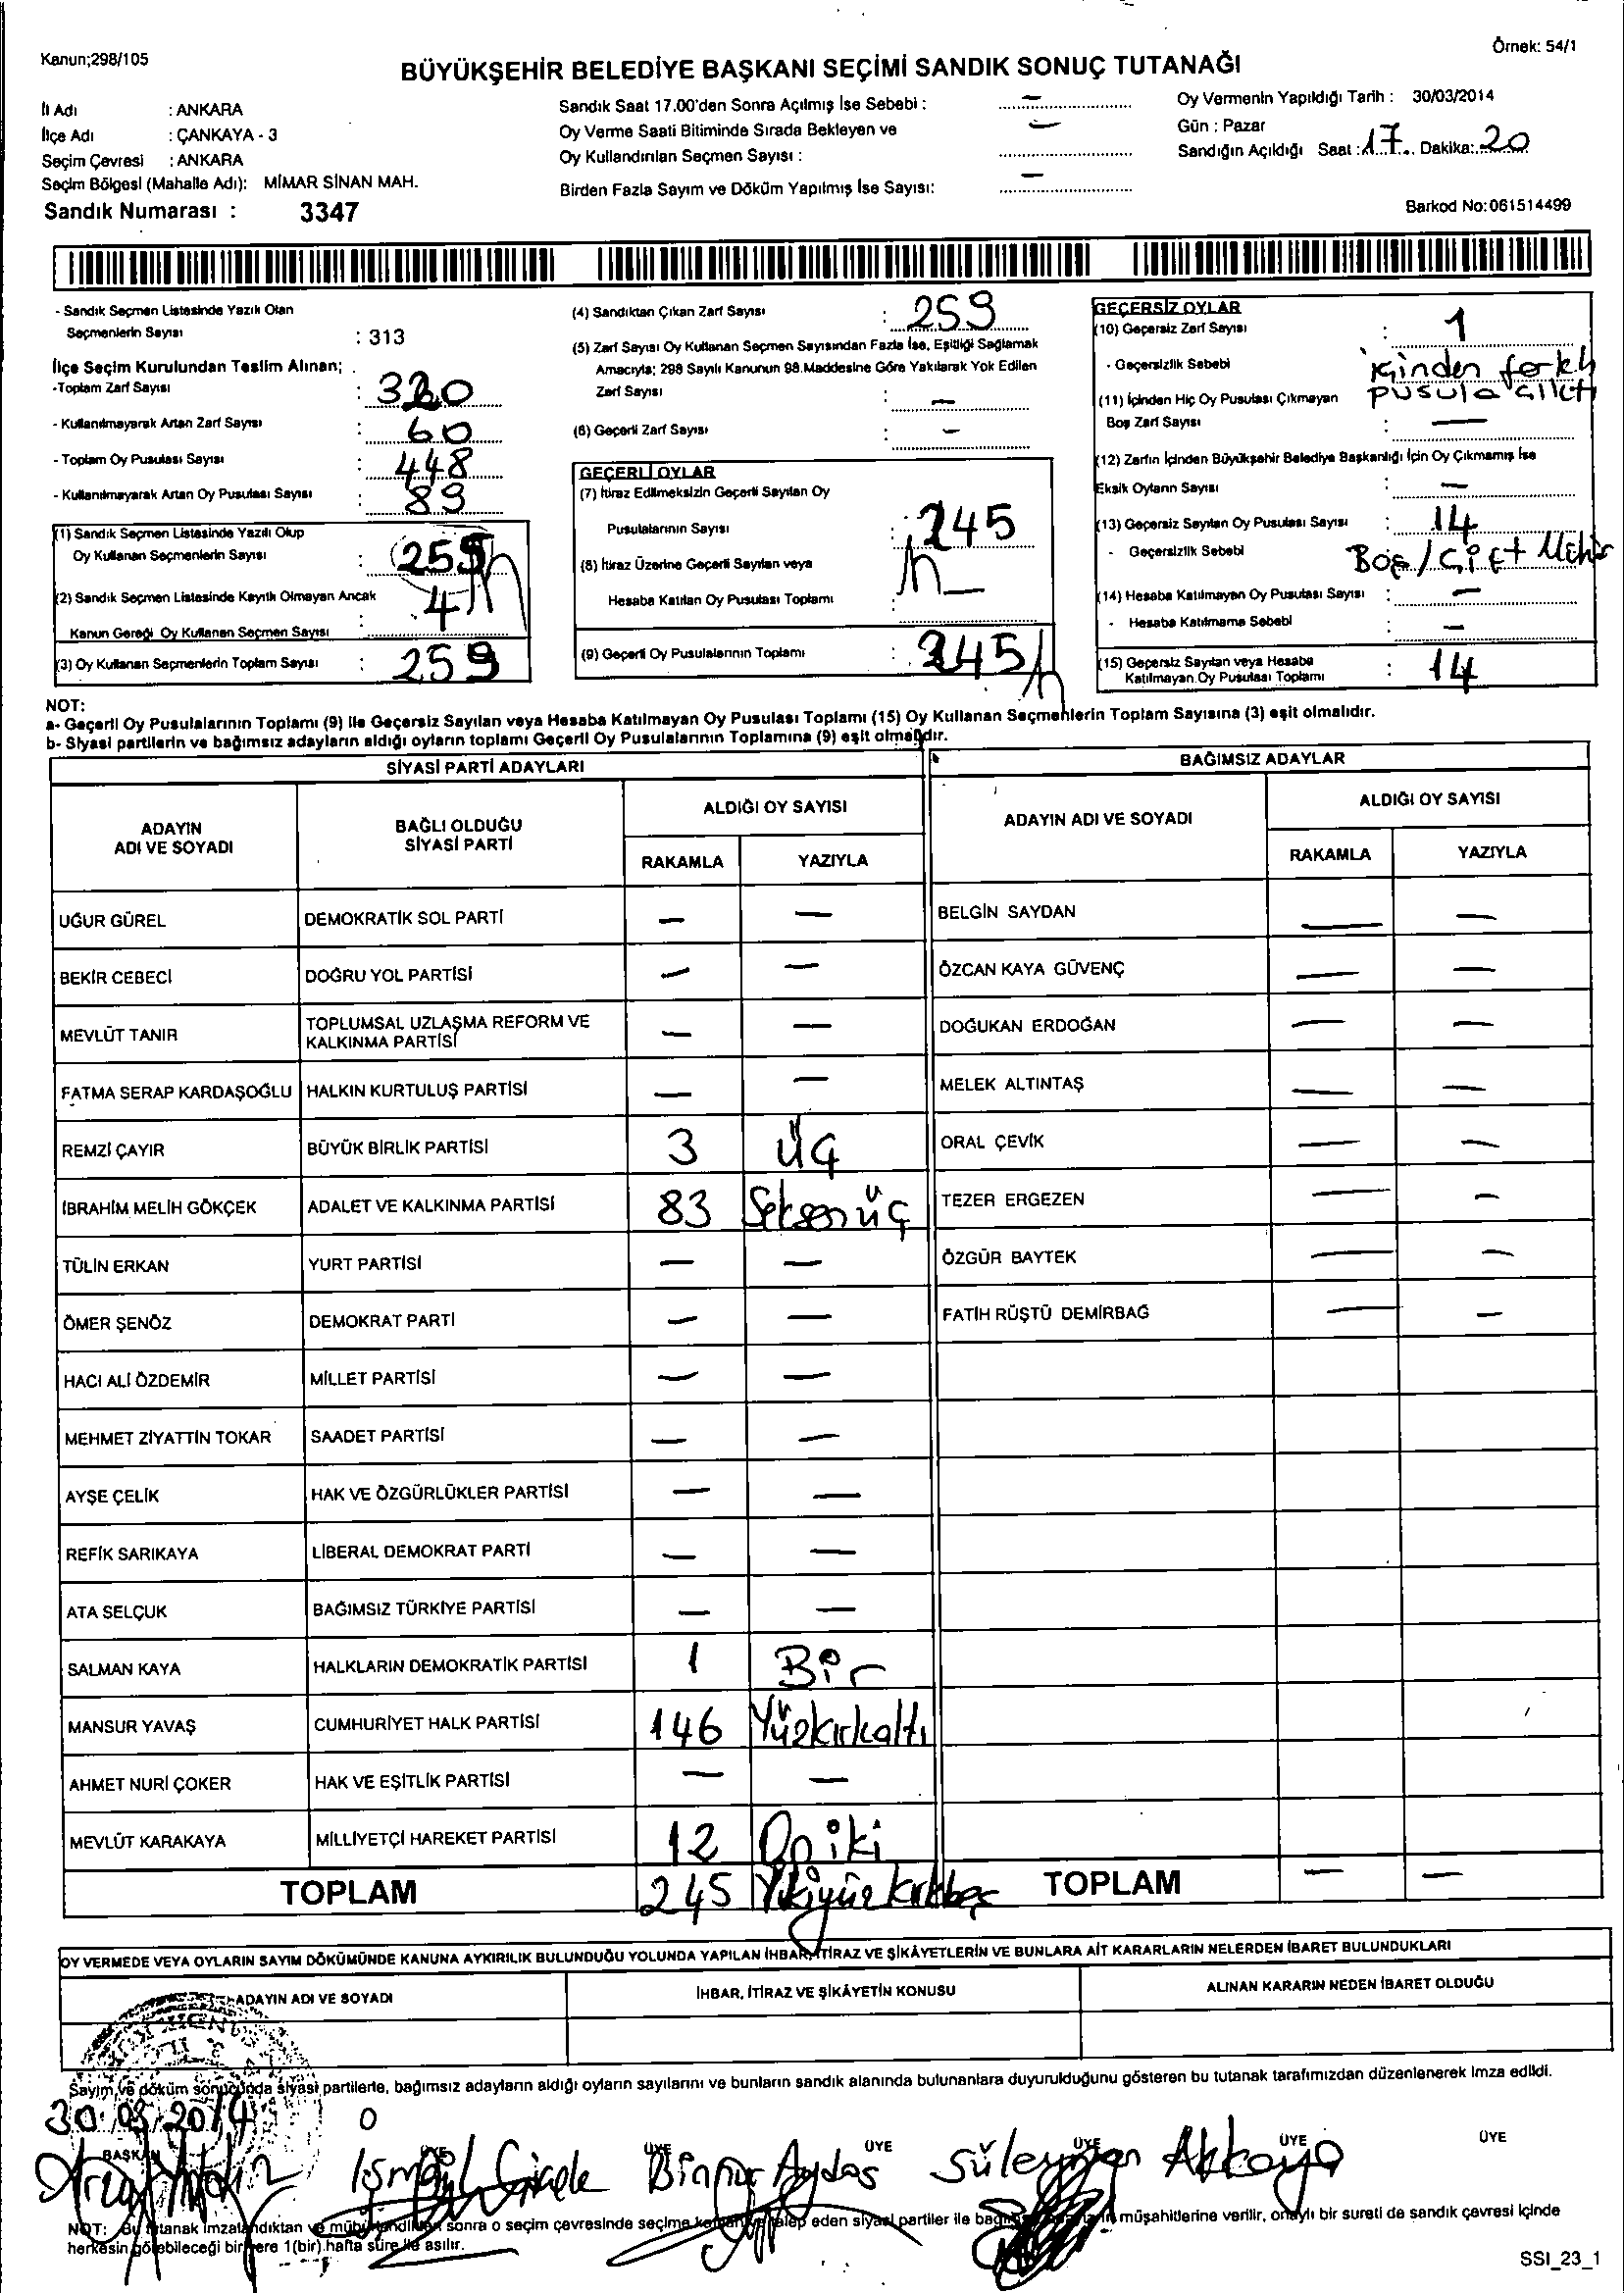 Kanun;298/105
Örnek: 54/1
BÜYÜKŞEHİR BELEDİYE BAŞKANI SEÇİMİ SANDIK SONUÇ TUTANAĞI
İl Adı : ANKARA
İlçe Adı : ÇANKAYA - 3
Seçim Çevresi : ANKARA
Seçim Bölgesi (Mahalle Adı): MİMAR SİNAN MAH.
Sandık Numarası : 3347
Sandık Saat 17.00'den Sonra Açılmış İse Sebebi : —
Oy Verme Saati Bitiminde Sırada Bekleyen ve
Oy Kullandırılan Seçmen Sayısı : —
Birden Fazla Sayım ve Döküm Yapılmış İse Sayısı: —
Oy Vermenin Yapıldığı Tarih : 30/03/2014
Gün : Pazar
Sandığın Açıldığı Saat : 17 Dakika: 20
Barkod No: 061514499
- Sandık Seçmen Listesinde Yazılı Olan
Seçmenlerin Sayısı : 313
İlçe Seçim Kurulundan Teslim Alınan;
-Toplam Zarf Sayısı : 320
- Kullanılmayarak Artan Zarf Sayısı : 60
- Toplam Oy Pusulası Sayısı : 448
- Kullanılmayarak Artan Oy Pusulası Sayısı : 89
(1) Sandık Seçmen Listesinde Yazılı Olup
Oy Kullanan Seçmenlerin Sayısı : 255
(2) Sandık Seçmen Listesinde Kayıtlı Olmayan Ancak
Kanun Gereği Oy Kullanan Seçmen Sayısı : 4
(3) Oy Kullanan Seçmenlerin Toplam Sayısı : 259
(4) Sandıktan Çıkan Zarf Sayısı : 259
(5) Zarf Sayısı Oy Kullanan Seçmen Sayısından Fazla İse, Eşitliği Sağlamak
Amacıyla; 298 Sayılı Kanunun 98.Maddesine Göre Yakılarak Yok Edilen
Zarf Sayısı : —
(6) Geçerli Zarf Sayısı : —
GEÇERLİ OYLAR
(7) İtiraz Edilmeksizin Geçerli Sayılan Oy
Pusulalarının Sayısı : 245
(8) İtiraz Üzerine Geçerli Sayılan veya
Hesaba Katılan Oy Pusulası Toplamı : —
(9) Geçerli Oy Pusulalarının Toplamı : 245
GEÇERSİZ OYLAR
(10) Geçersiz Zarf Sayısı : 1
- Geçersizlik Sebebi : içinden farklı
pusula çıktı
(11) İçinden Hiç Oy Pusulası Çıkmayan
Boş Zarf Sayısı : —
(12) Zarfın İçinden Büyükşehir Belediye Başkanlığı İçin Oy Çıkmamış İse
Eksik Oyların Sayısı : —
(13) Geçersiz Sayılan Oy Pusulası Sayısı : 14
- Geçersizlik Sebebi Boş / Çift Mühür
(14) Hesaba Katılmayan Oy Pusulası Sayısı : —
- Hesaba Katılmama Sebebi —
(15) Geçersiz Sayılan veya Hesaba
Katılmayan Oy Pusulası Toplamı : 14
NOT:
a- Geçerli Oy Pusulalarının Toplamı (9) ile Geçersiz Sayılan veya Hesaba Katılmayan Oy Pusulası Toplamı (15) Oy Kullanan Seçmenlerin Toplam Sayısına (3) eşit olmalıdır.
b- Siyasi partilerin ve bağımsız adayların aldığı oyların toplamı Geçerli Oy Pusulalarının Toplamına (9) eşit olmalıdır.
SİYASİ PARTİ ADAYLARI
ADAYIN ADI VE SOYADI
BAĞLI OLDUĞU SİYASİ PARTİ
ALDIĞI OY SAYISI
RAKAMLA YAZIYLA
UĞUR GÜREL DEMOKRATİK SOL PARTİ — —
BEKİR CEBECİ DOĞRU YOL PARTİSİ — —
MEVLÜT TANIR TOPLUMSAL UZLAŞMA REFORM VE KALKINMA PARTİSİ — —
FATMA SERAP KARDAŞOĞLU HALKIN KURTULUŞ PARTİSİ — —
REMZİ ÇAYIR BÜYÜK BİRLİK PARTİSİ 3 Üç
İBRAHİM MELİH GÖKÇEK ADALET VE KALKINMA PARTİSİ 83 Seksenüç
TÜLİN ERKAN YURT PARTİSİ — —
ÖMER ŞENÖZ DEMOKRAT PARTİ — —
HACI ALİ ÖZDEMİR MİLLET PARTİSİ — —
MEHMET ZİYATTİN TOKAR SAADET PARTİSİ — —
AYŞE ÇELİK HAK VE ÖZGÜRLÜKLER PARTİSİ — —
REFİK SARIKAYA LİBERAL DEMOKRAT PARTİ — —
ATA SELÇUK BAĞIMSIZ TÜRKİYE PARTİSİ — —
SALMAN KAYA HALKLARIN DEMOKRATİK PARTİSİ 1 Bir
MANSUR YAVAŞ CUMHURİYET HALK PARTİSİ 146 Yüzkırkaltı
AHMET NURİ ÇOKER HAK VE EŞİTLİK PARTİSİ — —
MEVLÜT KARAKAYA MİLLİYETÇİ HAREKET PARTİSİ 12 Oniki
TOPLAM 245 İkiyüzkırkbeş
BAĞIMSIZ ADAYLAR
ADAYIN ADI VE SOYADI
ALDIĞI OY SAYISI
RAKAMLA YAZIYLA
BELGİN SAYDAN — —
ÖZCAN KAYA GÜVENÇ — —
DOĞUKAN ERDOĞAN — —
MELEK ALTINTAŞ — —
ORAL ÇEVİK — —
TEZER ERGEZEN — —
ÖZGÜR BAYTEK — —
FATİH RÜŞTÜ DEMİRBAĞ — —
TOPLAM — —
OY VERMEDE VEYA OYLARIN SAYIM DÖKÜMÜNDE KANUNA AYKIRILIK BULUNDUĞU YOLUNDA YAPILAN İHBAR, İTİRAZ VE ŞİKÂYETLERİN VE BUNLARA AİT KARARLARIN NELERDEN İBARET BULUNDUKLARI
ADAYIN ADI VE SOYADI
İHBAR, İTİRAZ VE ŞİKÂYETİN KONUSU
ALINAN KARARIN NEDEN İBARET OLDUĞU
Sayım ve döküm sonucunda siyasi partilerle, bağımsız adayların aldığı oyların sayılarını ve bunların sandık alanında bulunanlara duyurulduğunu gösteren bu tutanak tarafımızdan düzenlenerek imza edildi.
30.03.2014
BAŞKAN ÜYE ÜYE ÜYE ÜYE ÜYE ÜYE
İsmail Binnur Aydaş Süleyman Akkaya
NOT: Bu tutanak imzalandıktan ve mühürlendikten sonra o seçim çevresinde seçime katılan ve talep eden siyasi partiler ile müşahitlerine verilir, onaylı bir sureti de sandık çevresi içinde
herkesin görebileceği bir yere 1(bir) hafta süre ile asılır.
SSI_23_1